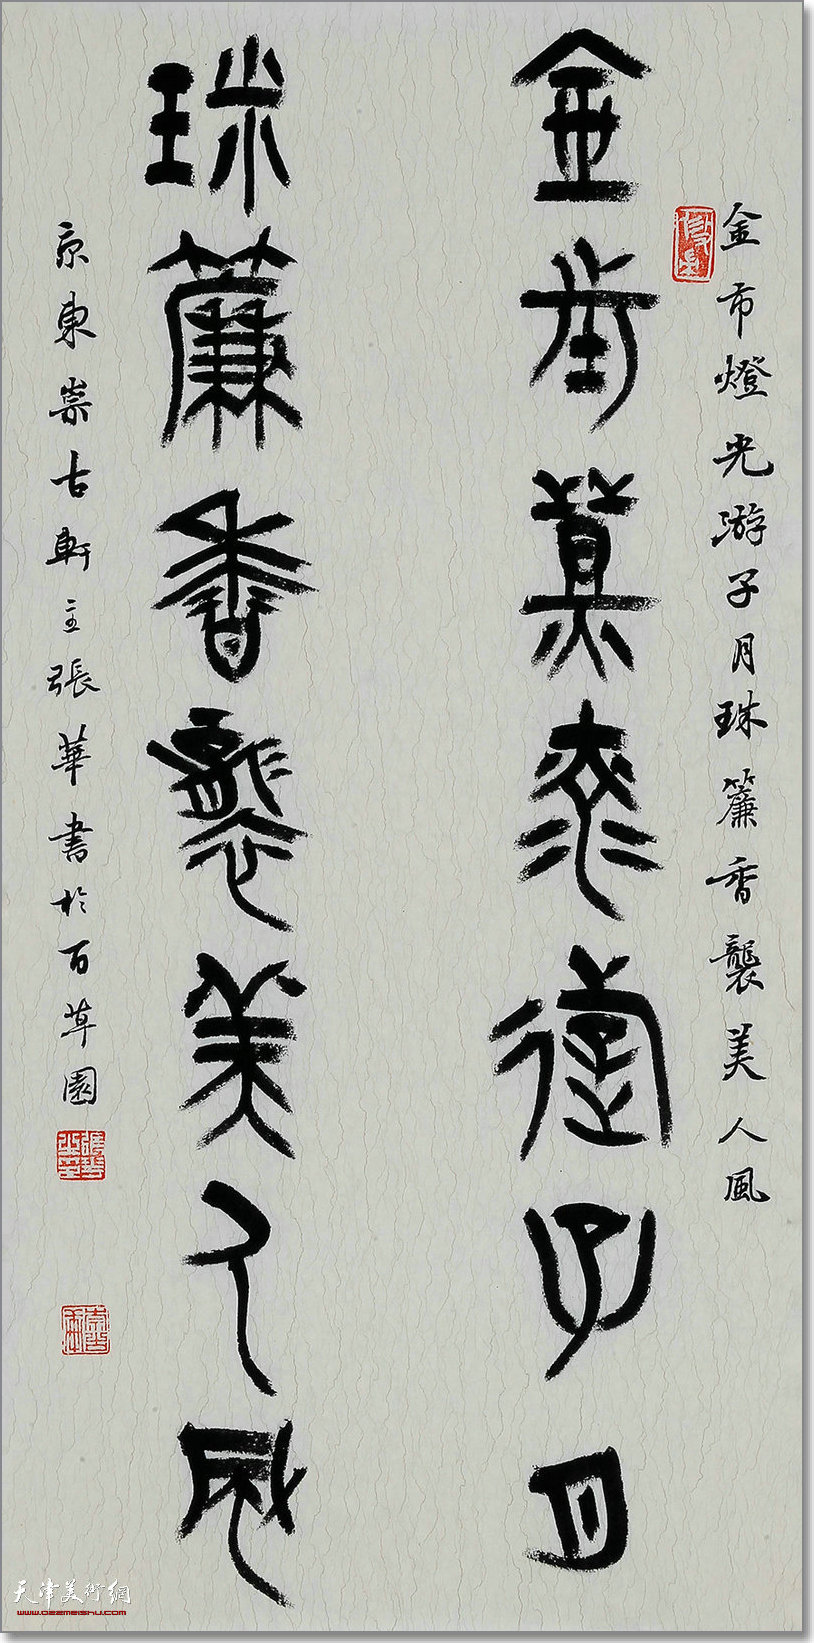 金市燈光游子月珠簾香襲美人風
金市燈光游子月
珠簾香襲美人風
京東崇古軒主張華書於百草園
天津美術網
www.022meishu.com